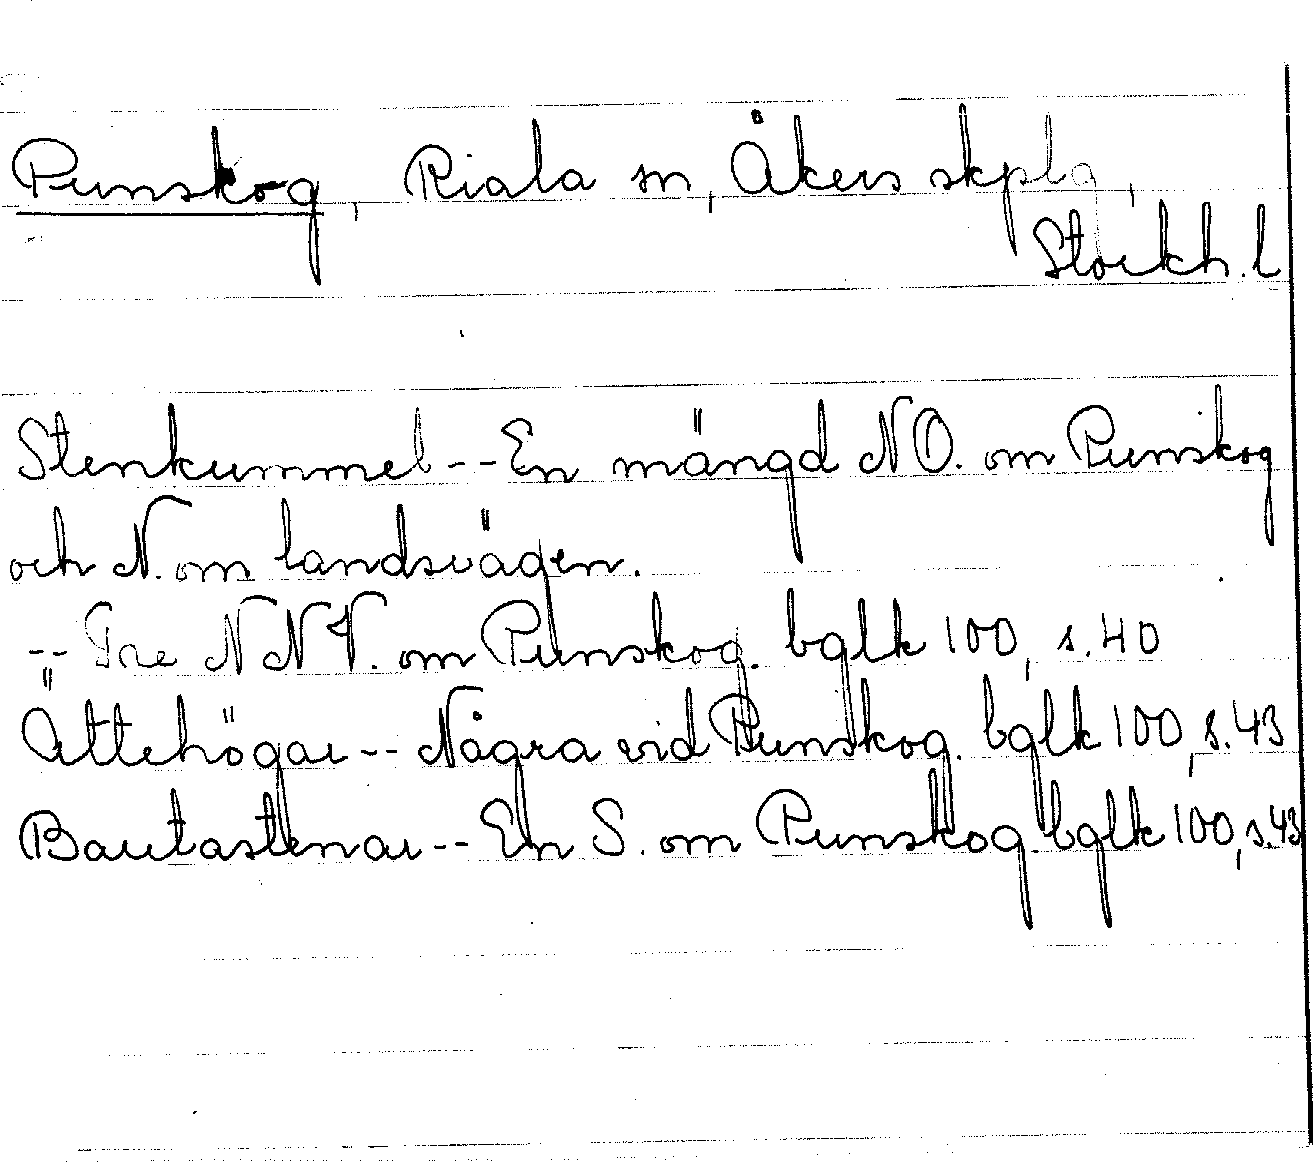 Punskog, Riala sn, Åkers skplg,
Stockh. l
Stenkummel -- En mängd NO. om Punskog
och N. om landsvägen.
-- Tre NNV. om Punskog. bglk 100, s. 40
Ättehögar -- Några vid Punskog. bglk 100, s. 43
Bautastenar -- En S. om Punskog. bglk 100, s. 43